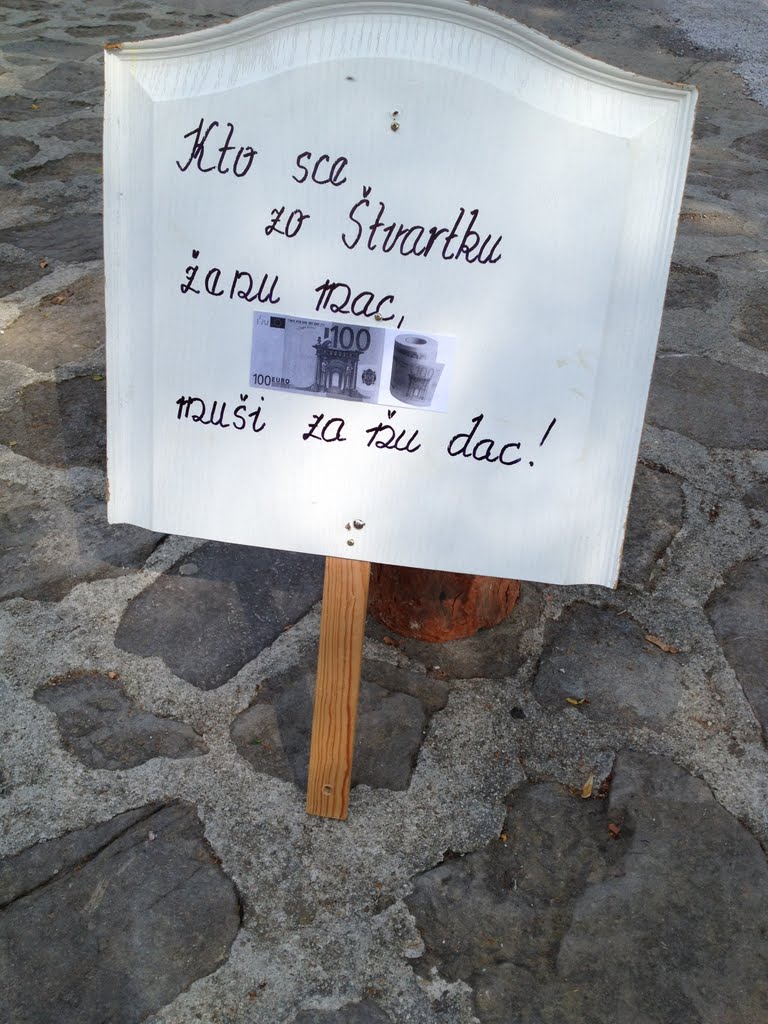 Kto sce
zo Štvartku
žanu mac,
100
100 EURO
muši za ňu dac!